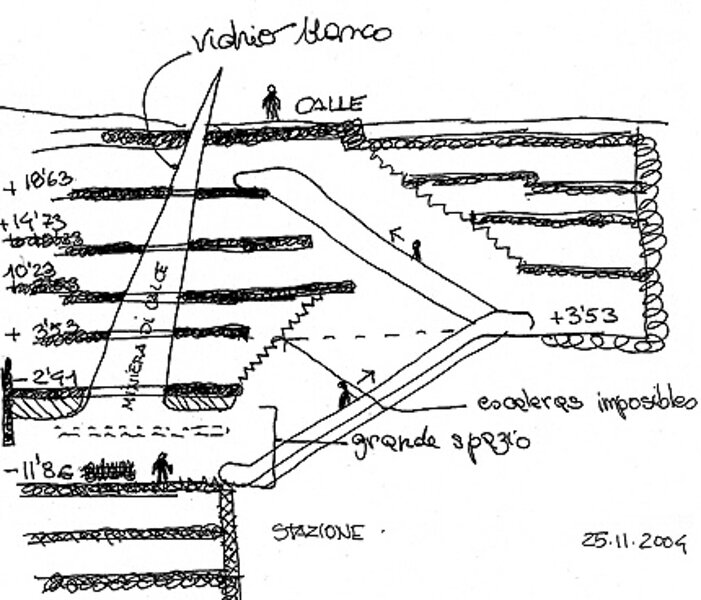 vidrio blanco
CALLE
+ 18'63
+14'73
10'23
+ 3'53
+3'53
-2'91
MINIERA DI LUCE
escaleras imposibles
grande spazio
-11'86
STAZIONE
25.11.2004